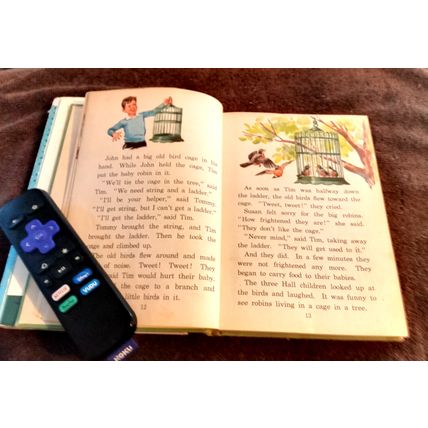 John had a big old bird cage in his
hand. While John held the cage, Tim
put the baby robin in it.
"We'll tie the cage in the tree," said
Tim. "We need string and a ladder."
"I'll be your helper," said Tommy.
"I'll get string, but I can't get a ladder."
"I'll get the ladder," said Tim.
Tommy brought the string, and Tim
brought the ladder. Then he took the
cage and climbed up.
The old birds flew around and made
of noise. Tweet! Tweet! They
said Tim would hurt their baby.
the cage to a branch and
little birds in it.
12
As soon as Tim was halfway down
the ladder, the old birds flew toward the
cage. "Tweet, tweet!" they cried.
Susan felt sorry for the big robins.
"How frightened they are!" she said.
"They don't like the cage."
"Never mind," said Tim, taking away
the ladder. "They will get used to it."
And they did. In a few minutes they
were not frightened any more. They
began to carry food to their babies.
The three Hall children looked up at
the birds and laughed. It was funny to
see robins living in a cage in a tree.
13
VUDU
ROKU